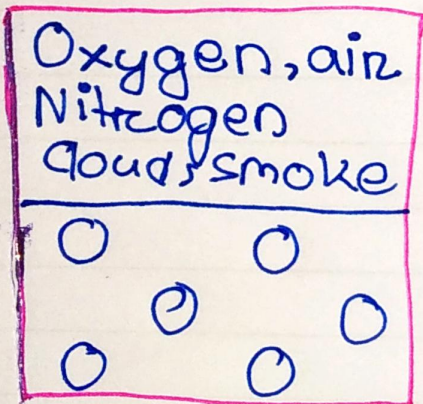 Oxygen, air
Nitrogen
Cloud, smoke